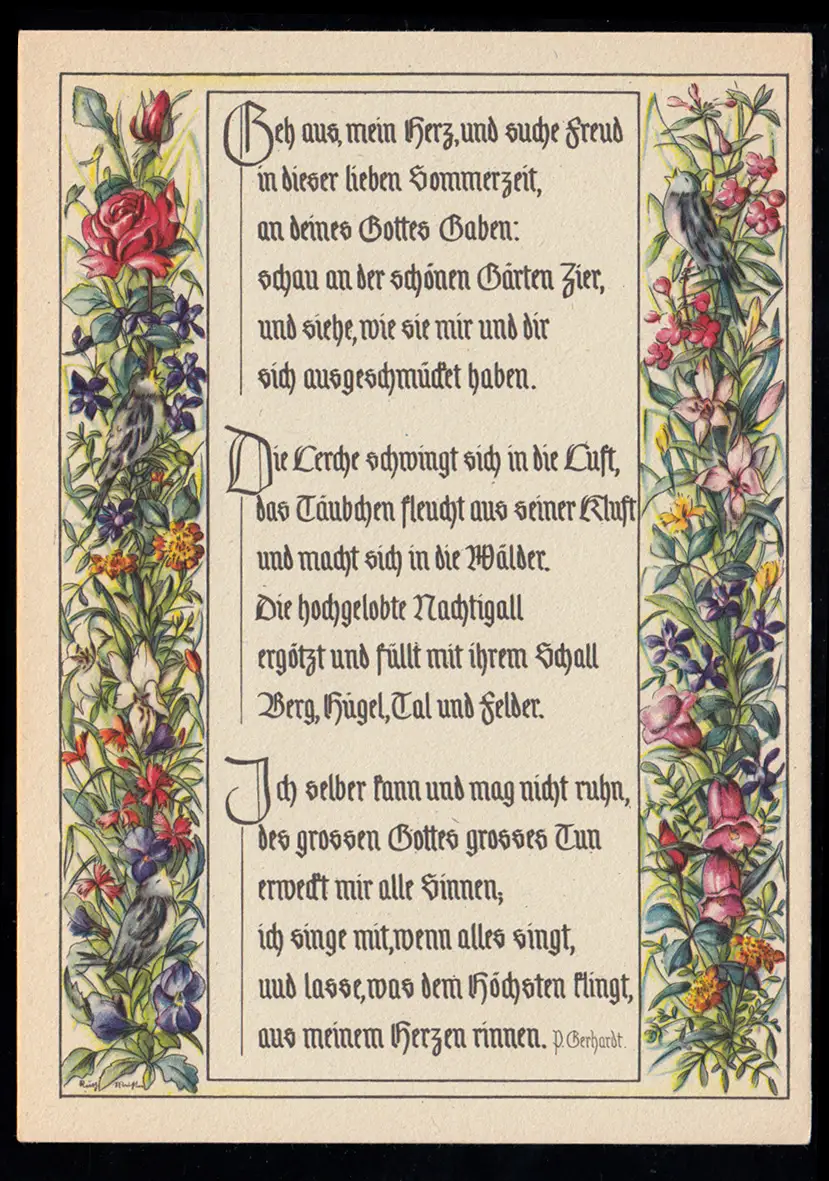 Geh aus, mein Herz, und suche Freud
in dieser lieben Sommerzeit,
an deines Gottes Gaben:
schau an der schönen Gärten Zier,
und siehe, wie sie mir und dir
sich ausgeschmücket haben.
Die Lerche schwingt sich in die Luft,
das Täubchen fleucht aus seiner Kluft
und macht sich in die Wälder.
Die hochgelobte Nachtigall
ergötzt und füllt mit ihrem Schall
Berg, Hügel, Tal und Felder.
Ich selber kann und mag nicht ruhn,
des grossen Gottes grosses Tun
erweckt mir alle Sinnen;
ich singe mit, wenn alles singt,
und lasse, was dem Höchsten klingt,
aus meinem Herzen rinnen. P. Gerhardt.